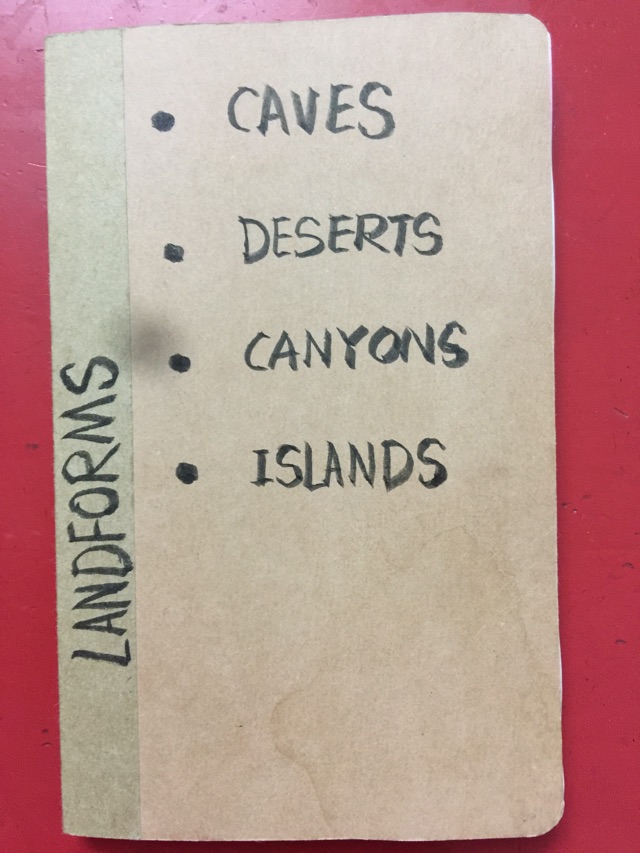 LANDFORMS
• CAVES
• DESERTS
• CANYONS
• ISLANDS